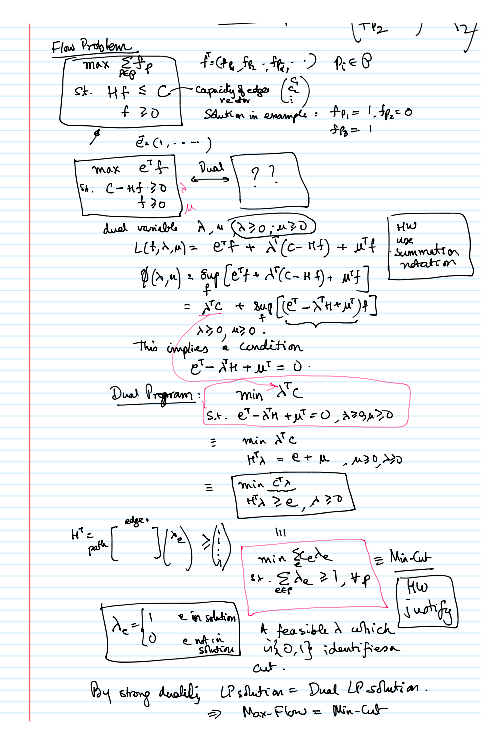 fp2 ) 12/
Flow Problem
max Σ_{p∈P} f_p    f^T = (f_{p1}, f_{p2} .. f_{pk}, ..)  p_i ∈ P
s.t. Hf ≤ C - capacity of edges vector (c_1 c_2 ⋮)
f ≥ 0    Solution in example: f_{p1} = 1, f_{p2} = 0
f_{p3} = 1
e = (1, ....)
max e^T f    Dual    ??
s.t. C - Hf ≥ 0  λ
f ≥ 0  μ
dual variable λ, μ (λ ≥ 0; μ ≥ 0)
L(f, λ, μ) = e^T f + λ^T (C - Hf) + μ^T f
HW
use
summation
notation
φ(λ, μ) = sup_f [e^T f + λ^T (C - Hf) + μ^T f]
= λ^T C + sup_f [(e^T - λ^T H + μ^T) f]
λ ≥ 0, μ ≥ 0.
This implies a condition
e^T - λ^T H + μ^T = 0.
Dual Program: min λ^T C
s.t. e^T - λ^T H + μ^T = 0, λ ≥ 0, μ ≥ 0
≡ min λ^T C
H^T λ = e + μ, μ ≥ 0, λ ≥ 0
≡ min C^T λ
H^T λ ≥ e, λ ≥ 0
edge.
H^T = path [ ] (λ_e) ≥ (1 1 ⋮ 1)
≡
min Σ_e c_e λ_e ≡ Min-Cut
s.t. Σ_{e∈p} λ_e ≥ 1, ∀p
HW
justify
λ_e = { 1 e in solution
0 e not in solution
A feasible λ which
is {0,1} identifies a
cut.
By strong duality LP solution = Dual LP solution.
⇒ Max-Flow = Min-Cut